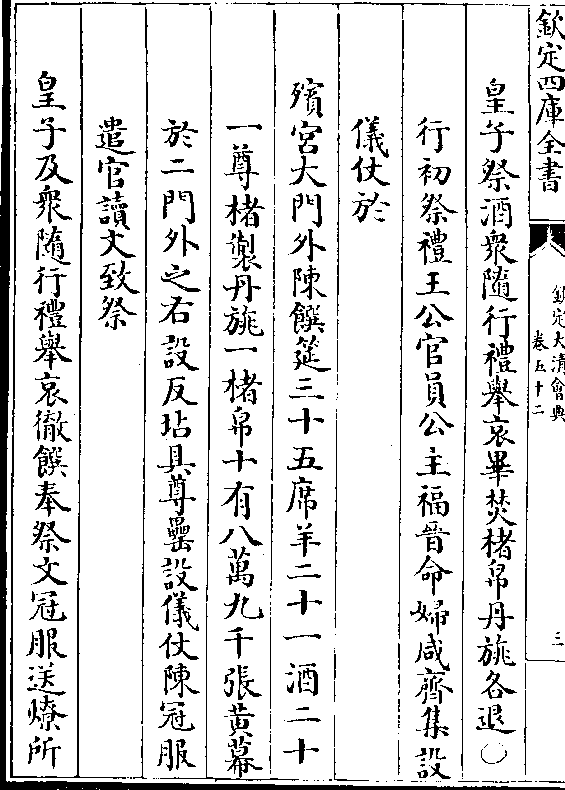 欽定四庫全書
欽定大清會典
卷五十二
三
皇子祭酒衆隨行禮舉哀畢焚楮帛丹旐各退〇
行初祭禮王公官員公主福晉命婦咸齊集設
儀仗於
殯宮大門外陳饌筵三十五席羊二十一酒二十
一尊楮製丹旐一楮帛十有八萬九千張黃幕
於二門外之右設反坫具尊罍設儀仗陳冠服
遣官讀文致祭
皇子及衆隨行禮舉哀徹饌奉祭文冠服送燎所